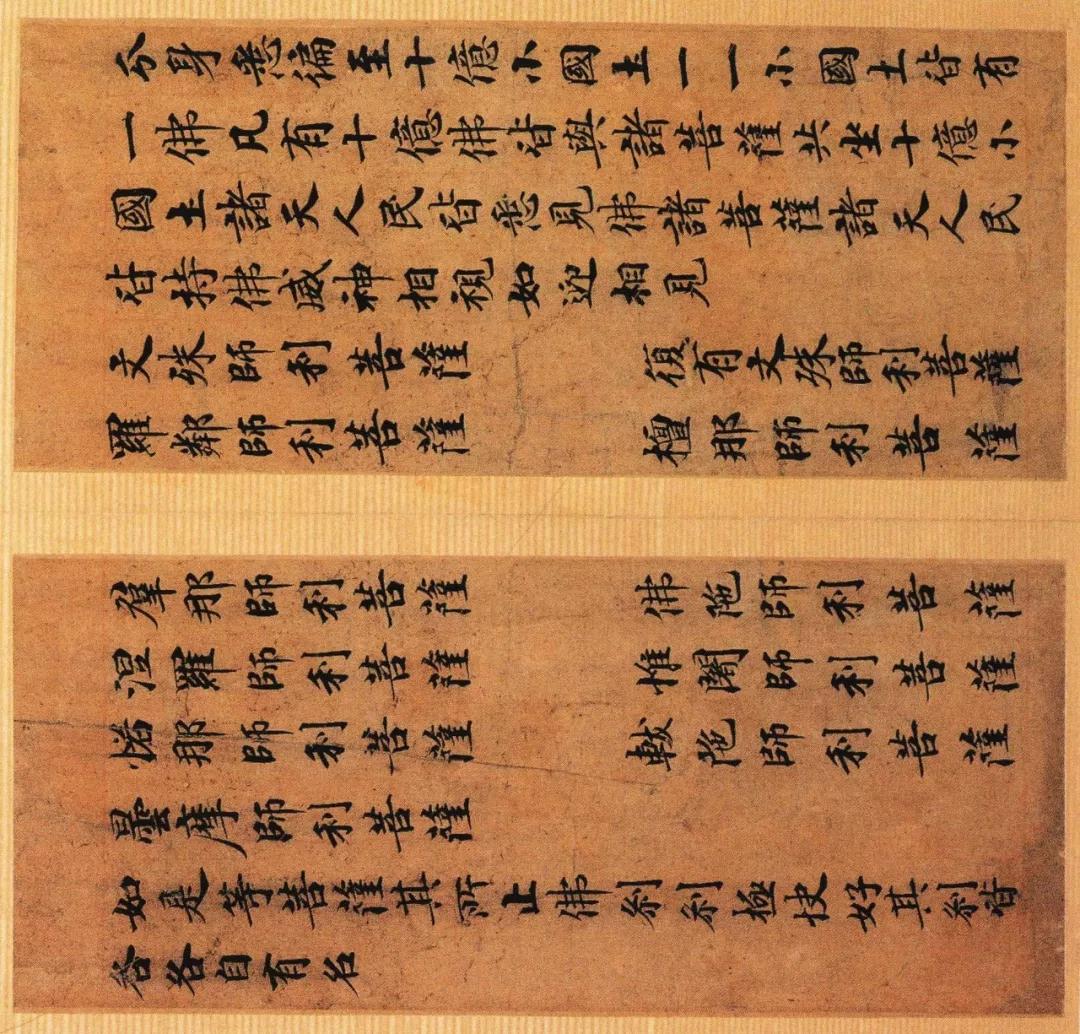 分身悉遍至十億小國土一一小國土皆有
一佛凡有十億佛皆與諸菩薩共坐十億小
國土諸天人民皆悉見佛諸菩薩諸天人民
皆持佛威神相視如迎相見
文殊師利菩薩 復有文殊師利菩薩
羅鄰師利菩薩 檀那師利菩薩
羣那師利菩薩 佛陁師利菩薩
涅羅師利菩薩 惟闍師利菩薩
那師利菩薩 軷陁師利菩薩
曇摩師利菩薩
如是等菩薩其所止佛剎剎極快好其剎皆
各各自有名